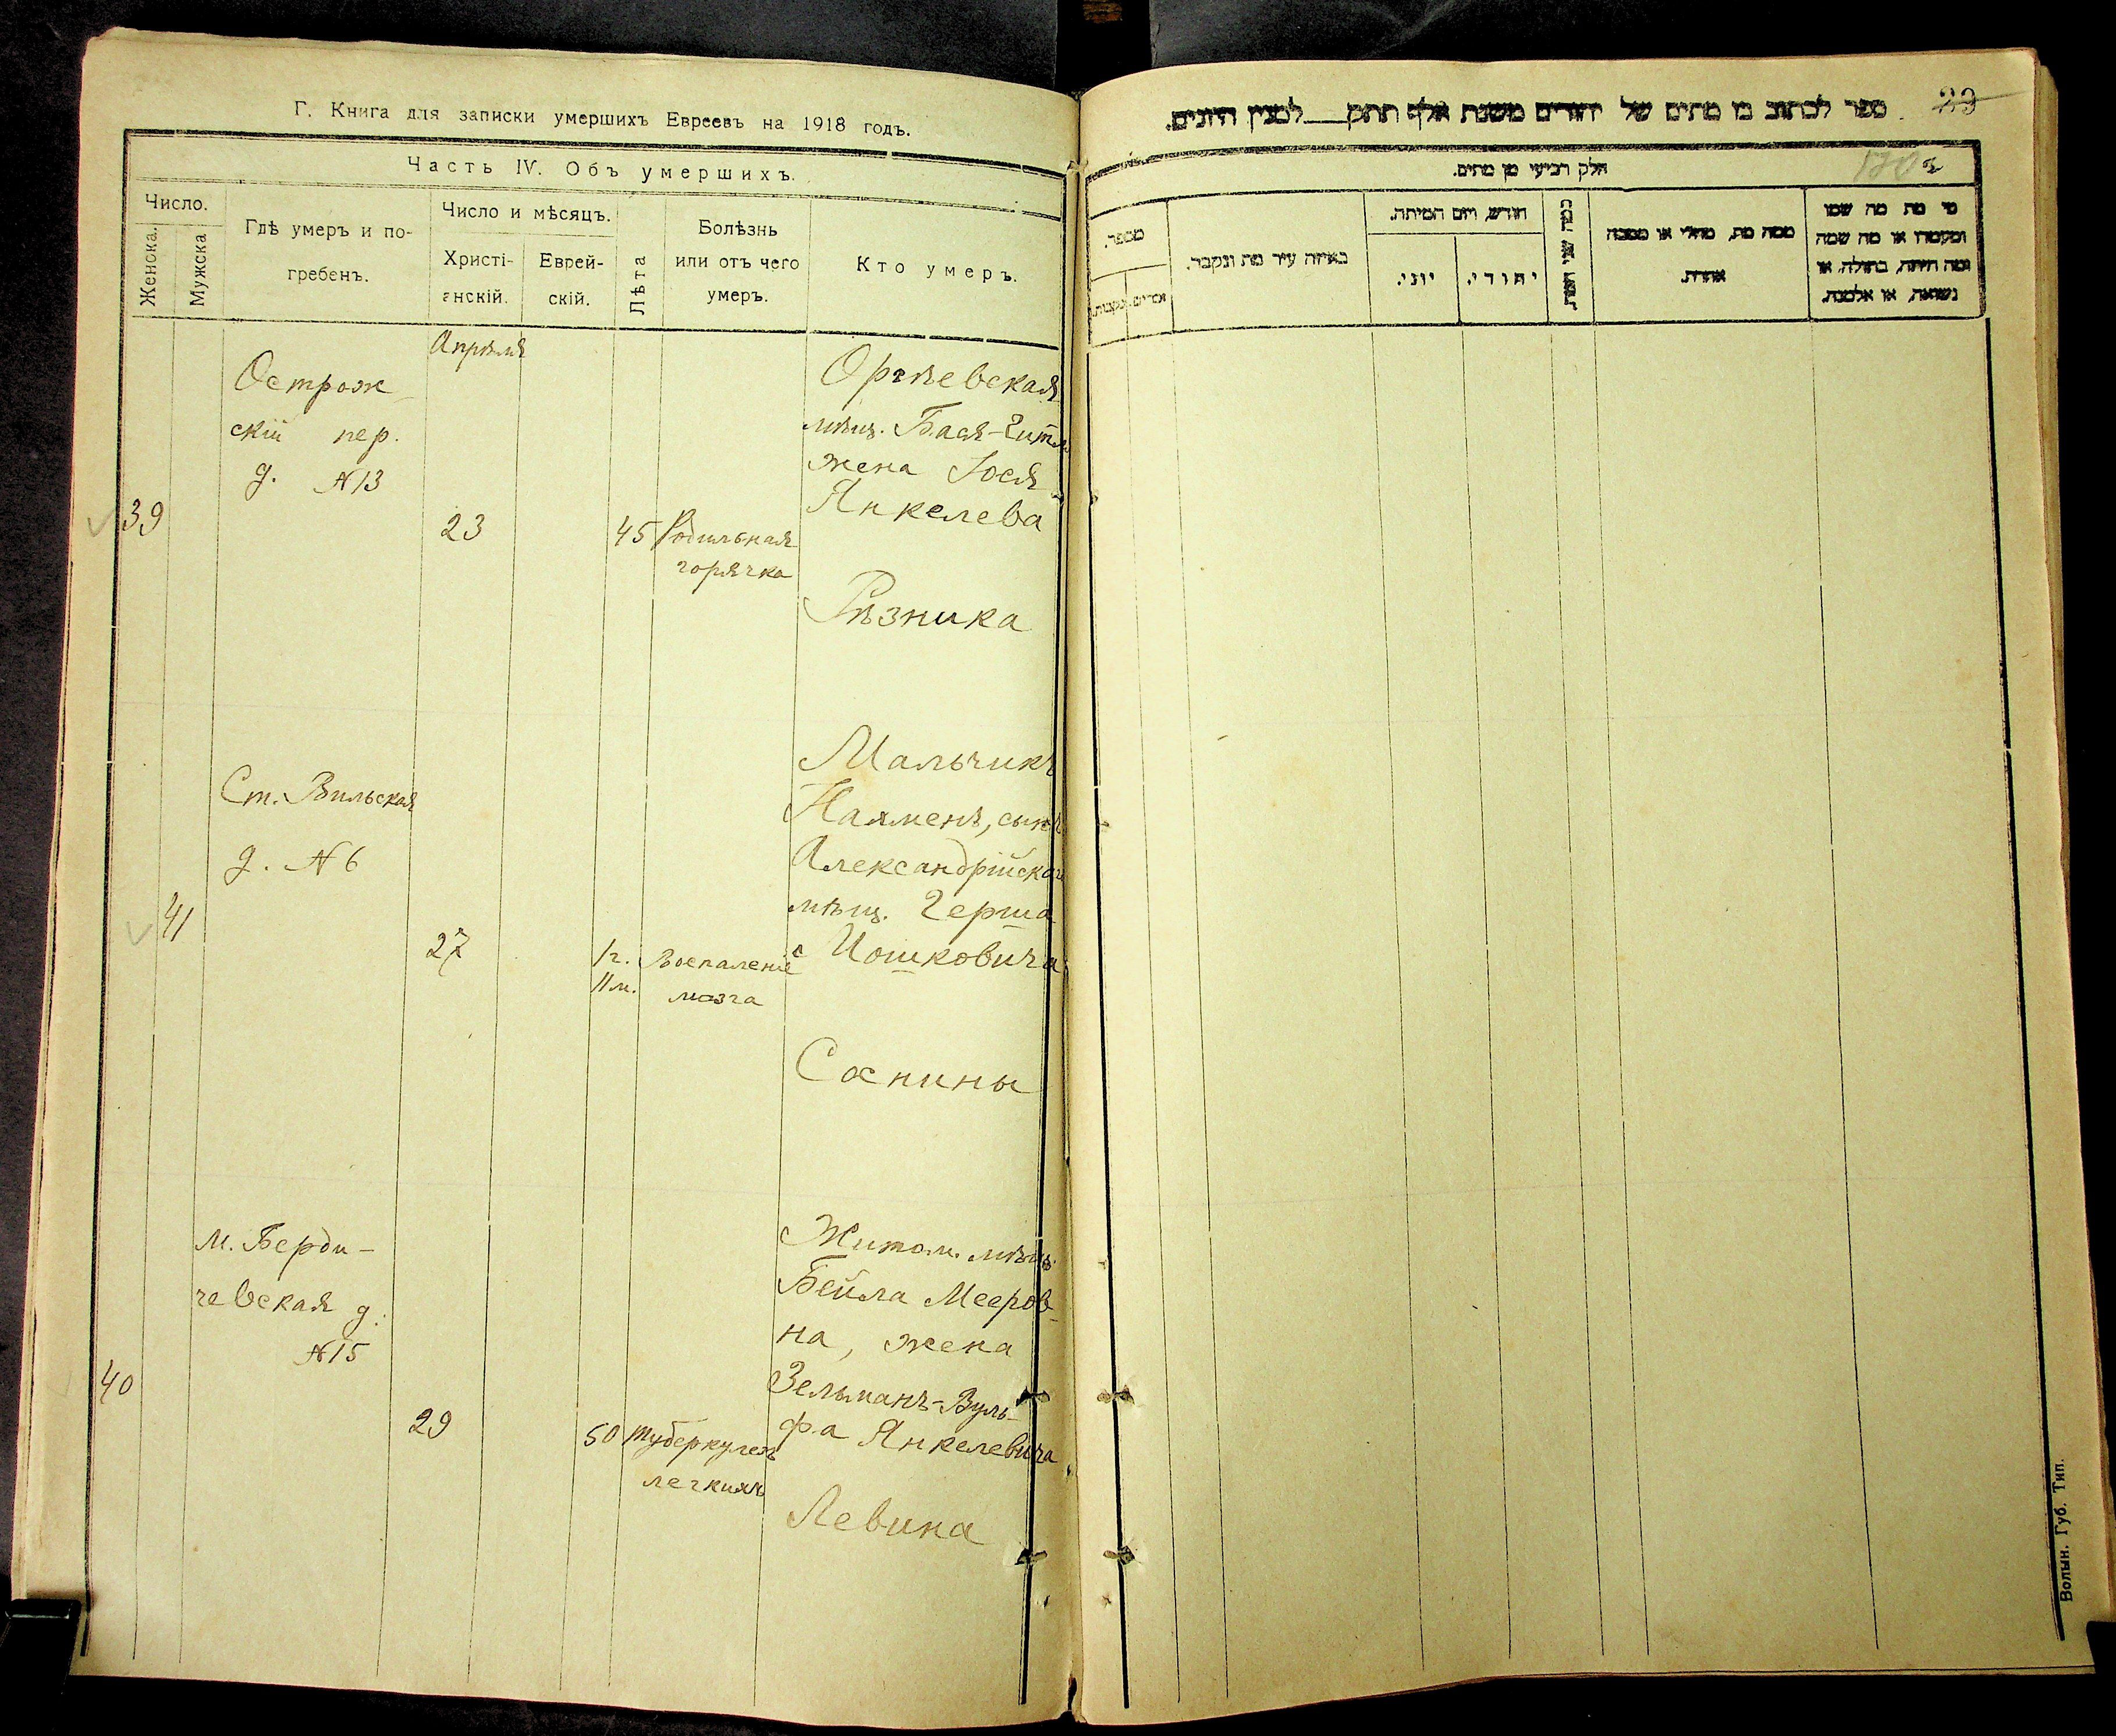 Г. Книга для записки умершихъ Евреевъ на 1918 годъ.
Часть IV. Объ умершихъ.
Число.
Женска.
Мужска
Гдѣ умеръ и по-
гребенъ.
Число и мѣсяцъ.
Христі-
анскій.
Еврей-
скій.
Лѣта
Болѣзнь
или отъ чего
умеръ.
Кто умеръ.
Апрѣля
Острож
скій пер.
д. №13
39
23
45
Родильная
горячка
Оргѣевская
мѣщ. Бася-Гитля
жена Іося
Янкелева
Рѣзника
Ст. Вильская
д. №6
41
27
1г.
11м.
Воспаленіе
мозга
Мальчикъ
Нахменъ, сынъ
Александрійскаго
мѣщ. Герша
Иошковича
Соснины
М. Берди-
чевская д.
№15
40
29
50
туберкулезъ
легкихъ
Житом. мѣщ.
Бейла Мееров
на, жена
Зельманъ-Вуль-
фа Янкелевича
Левина
ספר לכתוב בו מתים של יהודים משנת אלף תתק___למנין היונים.
29
חלק רביעי מן מתים.
מספר.
זכרים.
נקבות.
באיזה עיר מת ונקבר.
חודש, ויום המיתה.
יוני.
יהודי.
כמה שני חיות.
ממה מת, מחלי או מסבה
אחרת.
מי מת מה שמו
ומעמדו או מה שמה
ומה היתה, בתולה, או
נשואה, או אלמנה.
Волын. Губ. Тип.